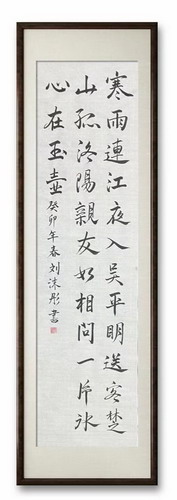 寒雨連江夜入吴平明送客楚
山孤洛陽親友如相問一片氷
心在玉壺
癸卯年春刘沫彤書